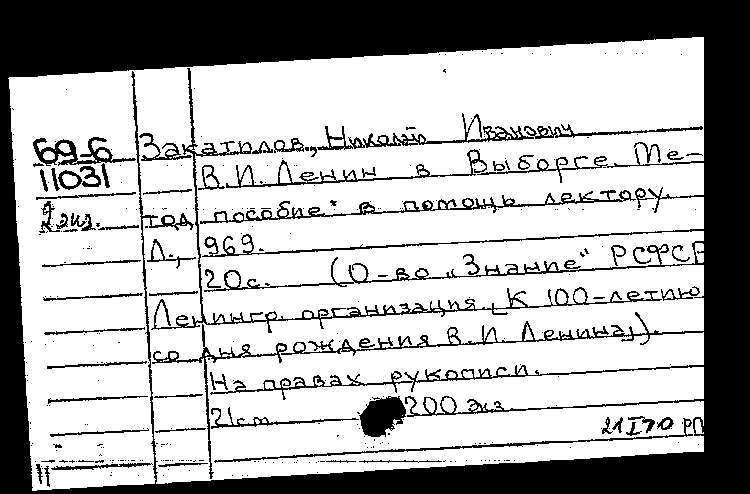 69-6 Закатилов, Николай Иванович
11031 В.И. Ленин в Выборге. Ме-
2 экз. тод. пособие в помощь лектору.
Л., 969.
20с. (О-во „Знание" РСФСР
Ленингр. организация. [К 100-летию
со дня рождения В.И. Ленина]).
На правах рукописи.
21см 200 экз.
21 I 70 РП